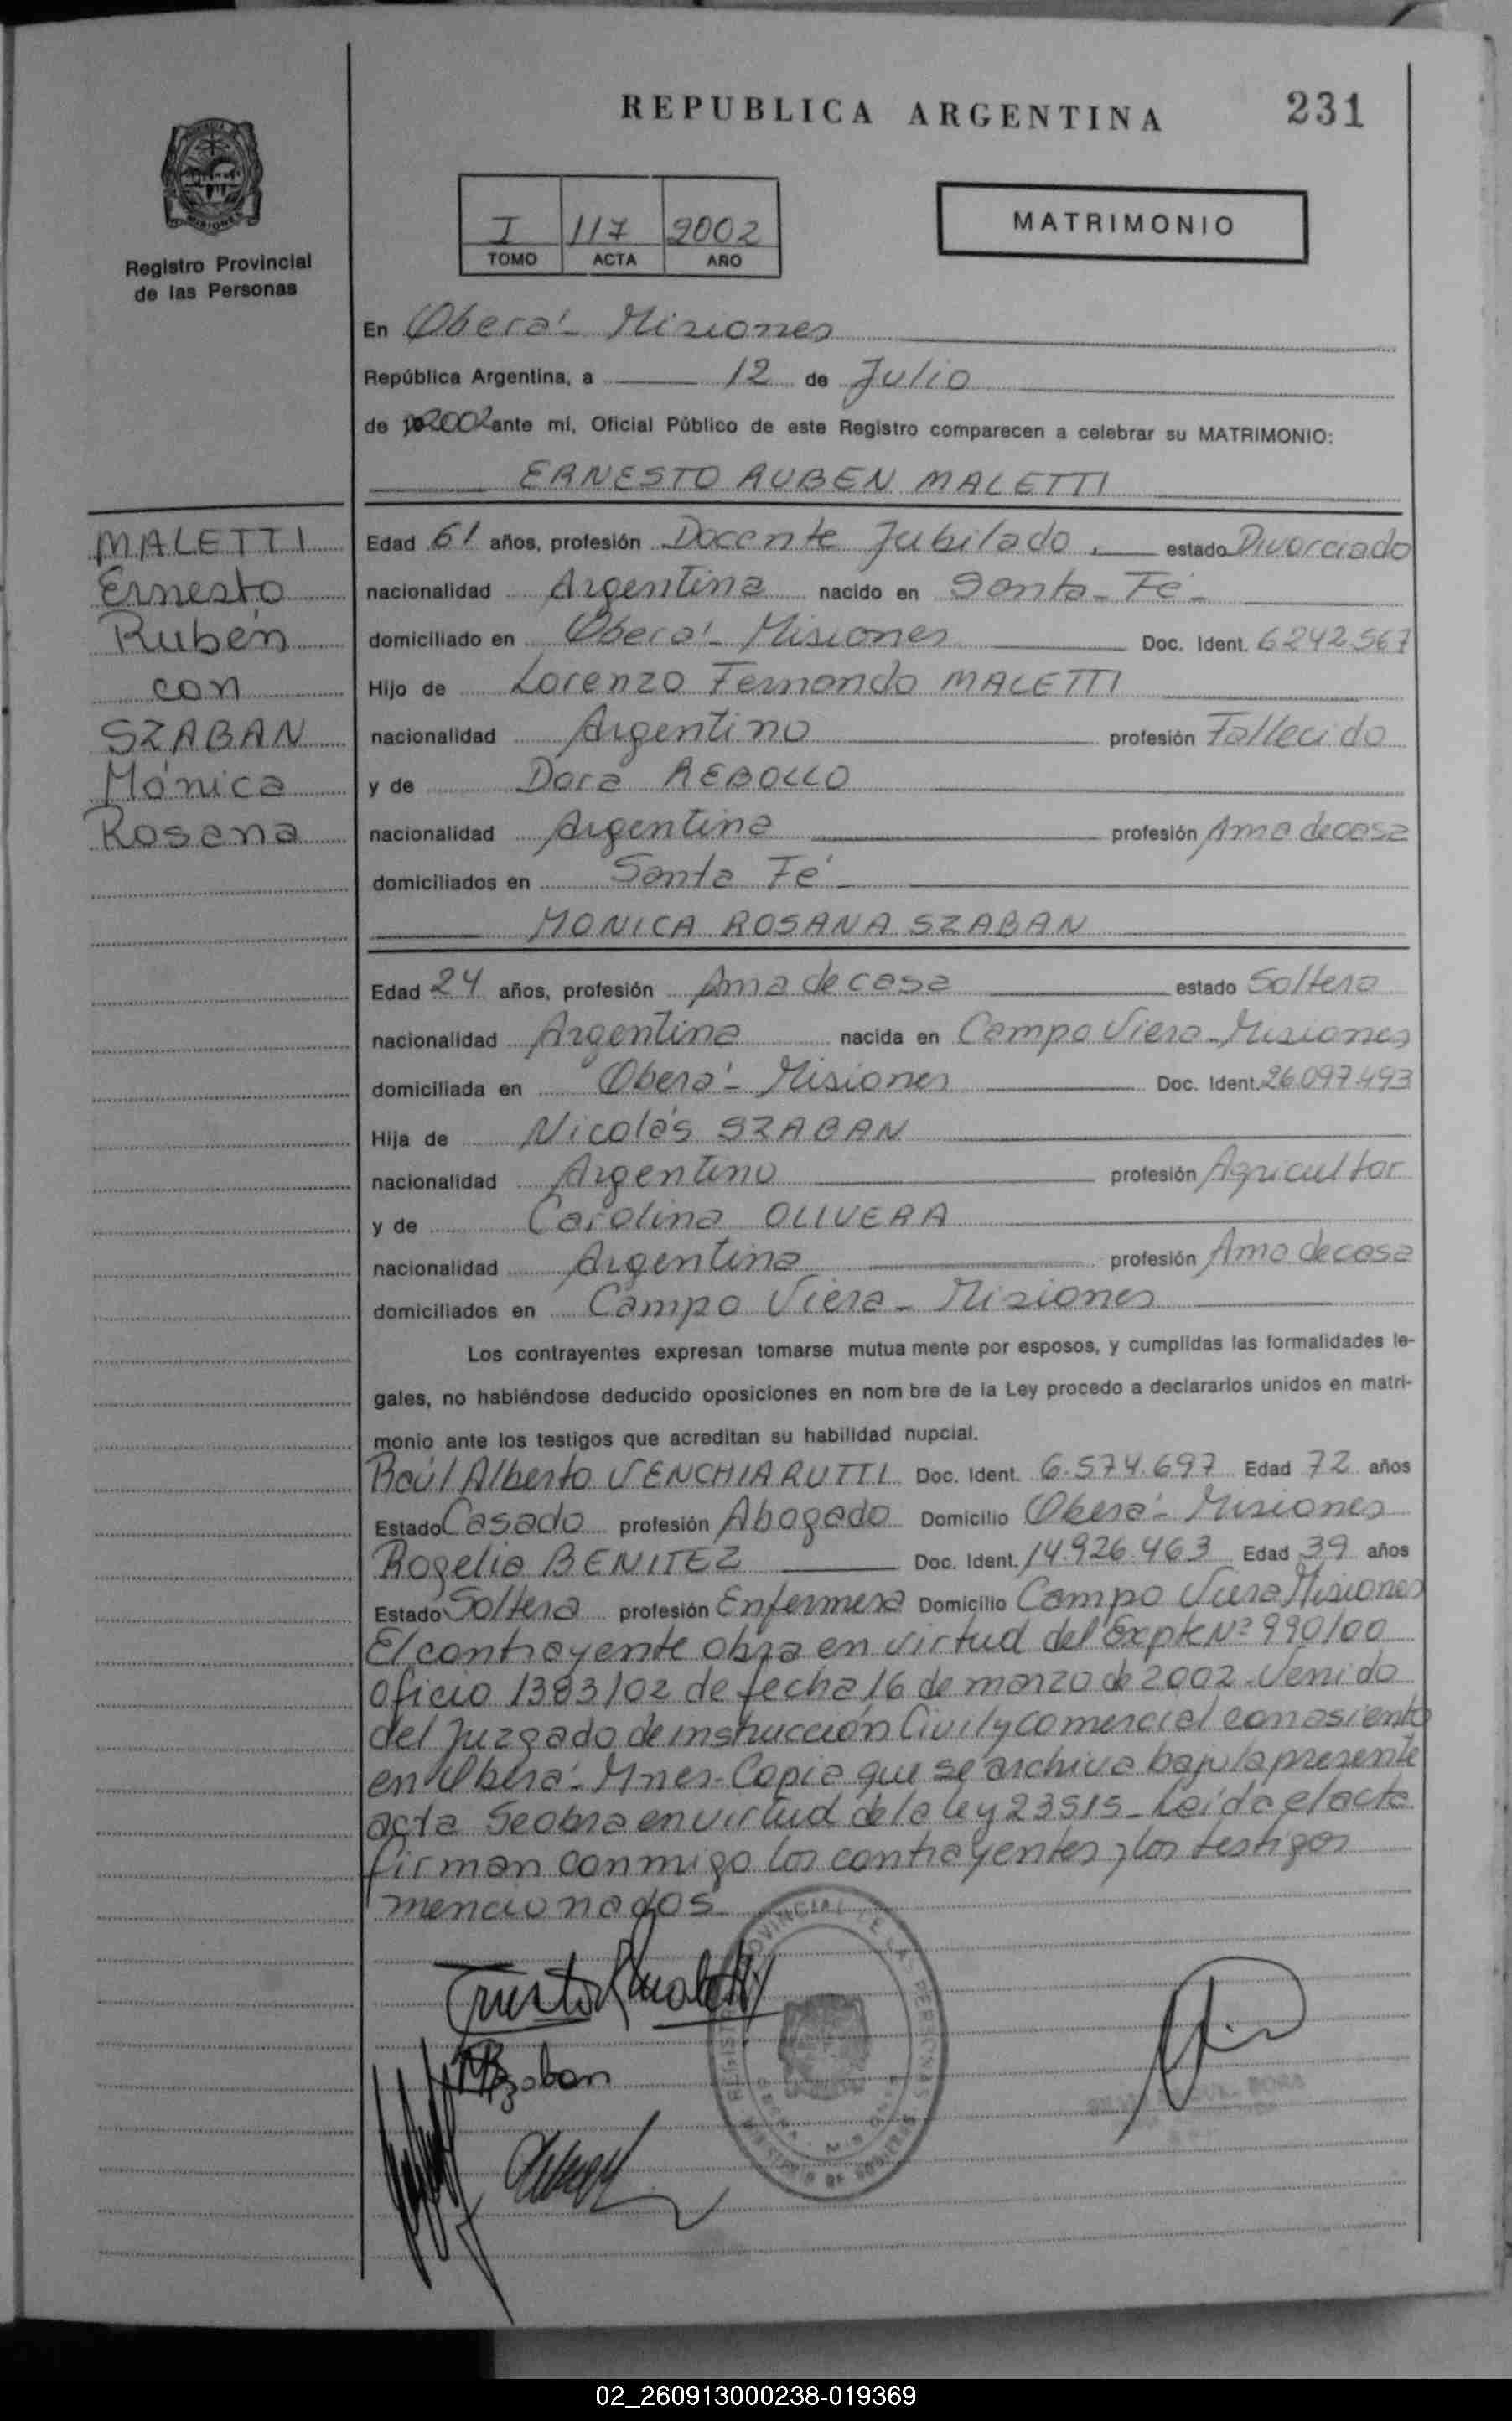 REPUBLICA ARGENTINA
231
MISIONES
Registro Provincial
de las Personas
I 117 2002
TOMO ACTA AÑO
MATRIMONIO
En Oberá - Misiones
República Argentina, a 12 de Julio
de 2002 ante mí, Oficial Público de este Registro comparecen a celebrar su MATRIMONIO:
ERNESTO RUBEN MALETTI
MALETTI
Ernesto
Rubén
con
SZABAN
Mónica
Rosana
Edad 61 años, profesión Docente Jubilado. estado Divorciado
nacionalidad Argentina nacido en Santa - Fé -
domiciliado en Oberá - Misiones Doc. Ident. 6242.567
Hijo de Lorenzo Fernando MALETTI
nacionalidad Argentino profesión Fallecido
y de Dora REBOLLO
nacionalidad Argentina profesión Ama de casa
domiciliados en Santa Fé -
MONICA ROSANA SZABAN
Edad 24 años, profesión Ama de casa estado Soltera
nacionalidad Argentina nacida en Campo Viera - Misiones
domiciliada en Oberá - Misiones Doc. Ident. 26.097.493
Hija de Nicolás SZABAN
nacionalidad Argentino profesión Agricultor
y de Carolina OLIVERA
nacionalidad Argentina profesión Ama de casa
domiciliados en Campo Viera - Misiones
Los contrayentes expresan tomarse mutua mente por esposos, y cumplidas las formalidades le-
gales, no habiéndose deducido oposiciones en nom bre de la Ley procedo a declararlos unidos en matri-
monio ante los testigos que acreditan su habilidad nupcial.
Raúl Alberto VENCHIARUTTI Doc. Ident. 6.574.697 Edad 72 años
Estado Casado profesión Abogado Domicilio Oberá - Misiones
Rogelia BENITEZ Doc. Ident. 14.926.463 Edad 39 años
Estado Soltera profesión Enfermera Domicilio Campo Viera Misiones
El contrayente obra en virtud del Expte Nº 990/00
Oficio 1383/02 de fecha 16 de marzo de 2002. Venido
del Juzgado de instrucción Civil y Comercial con asiento
en Oberá - Mnes - Copia que se archiva bajo la presente
acta Se obra en virtud de la ley 23515 - Leída el acta
firman conmigo los contrayentes y los testigos
mencionados
02_260913000238-019369